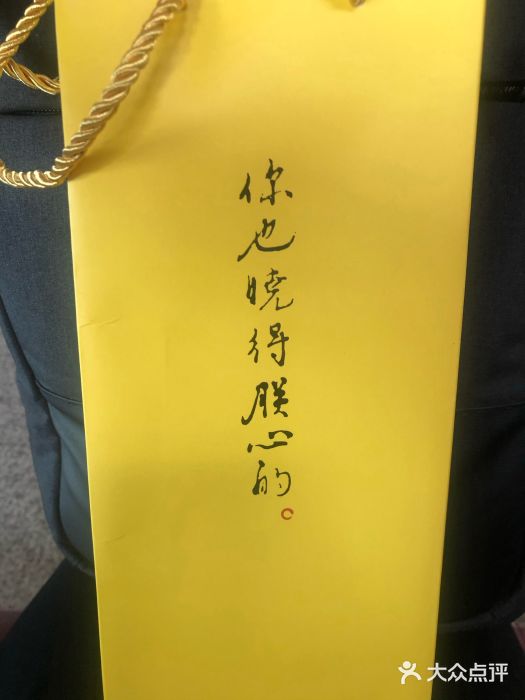 你也曉得朕心的。
大众点评